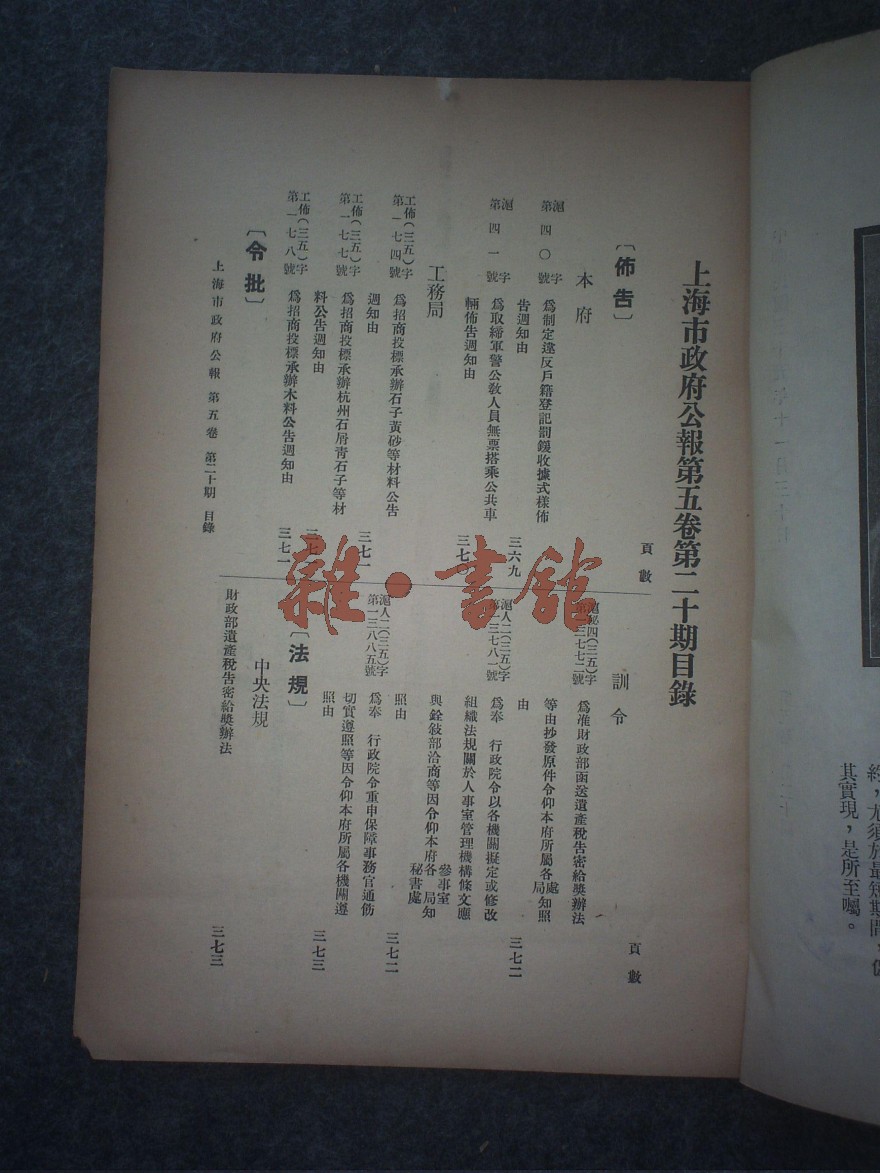 上海市政府公報第五卷第二十期目錄
頁數
〔佈告〕
本府
滬字第四〇號
為制定違反戶籍登記罰鍰收據式樣佈
告週知由
三六九
滬字第四一號
為取締軍警公教人員無票搭乘公共車
輛佈告週知由
三七
工務局
工佈(三五)字第一七四號
為招商投標承辦石子黃砂等材料公告
週知由
三七一
工佈(三五)字第一七七號
為招商投標承辦杭州石屑青石子等材
料公告週知由
工佈(三五)字第一七八號
為招商投標承辦木料公告週知由
三七一
〔令批〕
頁數
訓令
滬秘四(三五)字第一三七七二號
為准財政部函送遺產稅告密給獎辦法
等由抄發原件令仰本府所屬各處局知照
由
三七二
滬人二(三五)字第一三七八一號
為奉 行政院令以各機關擬定或修改
組織法規關於人事室管理機構條文應
與銓敍部洽商等因令仰本府各參事室秘書處局知
照由
三七二
滬人二(三五)字第一三八八五號
為奉 行政院令重申保障事務官通飭
切實遵照等因令仰本府所屬各機關遵
照由
三七三
〔法規〕
中央法規
財政部遺產稅告密給獎辦法
三七三
上海市政府公報 第五卷 第二十期 目錄
雜·書館
其實現，是所至囑。